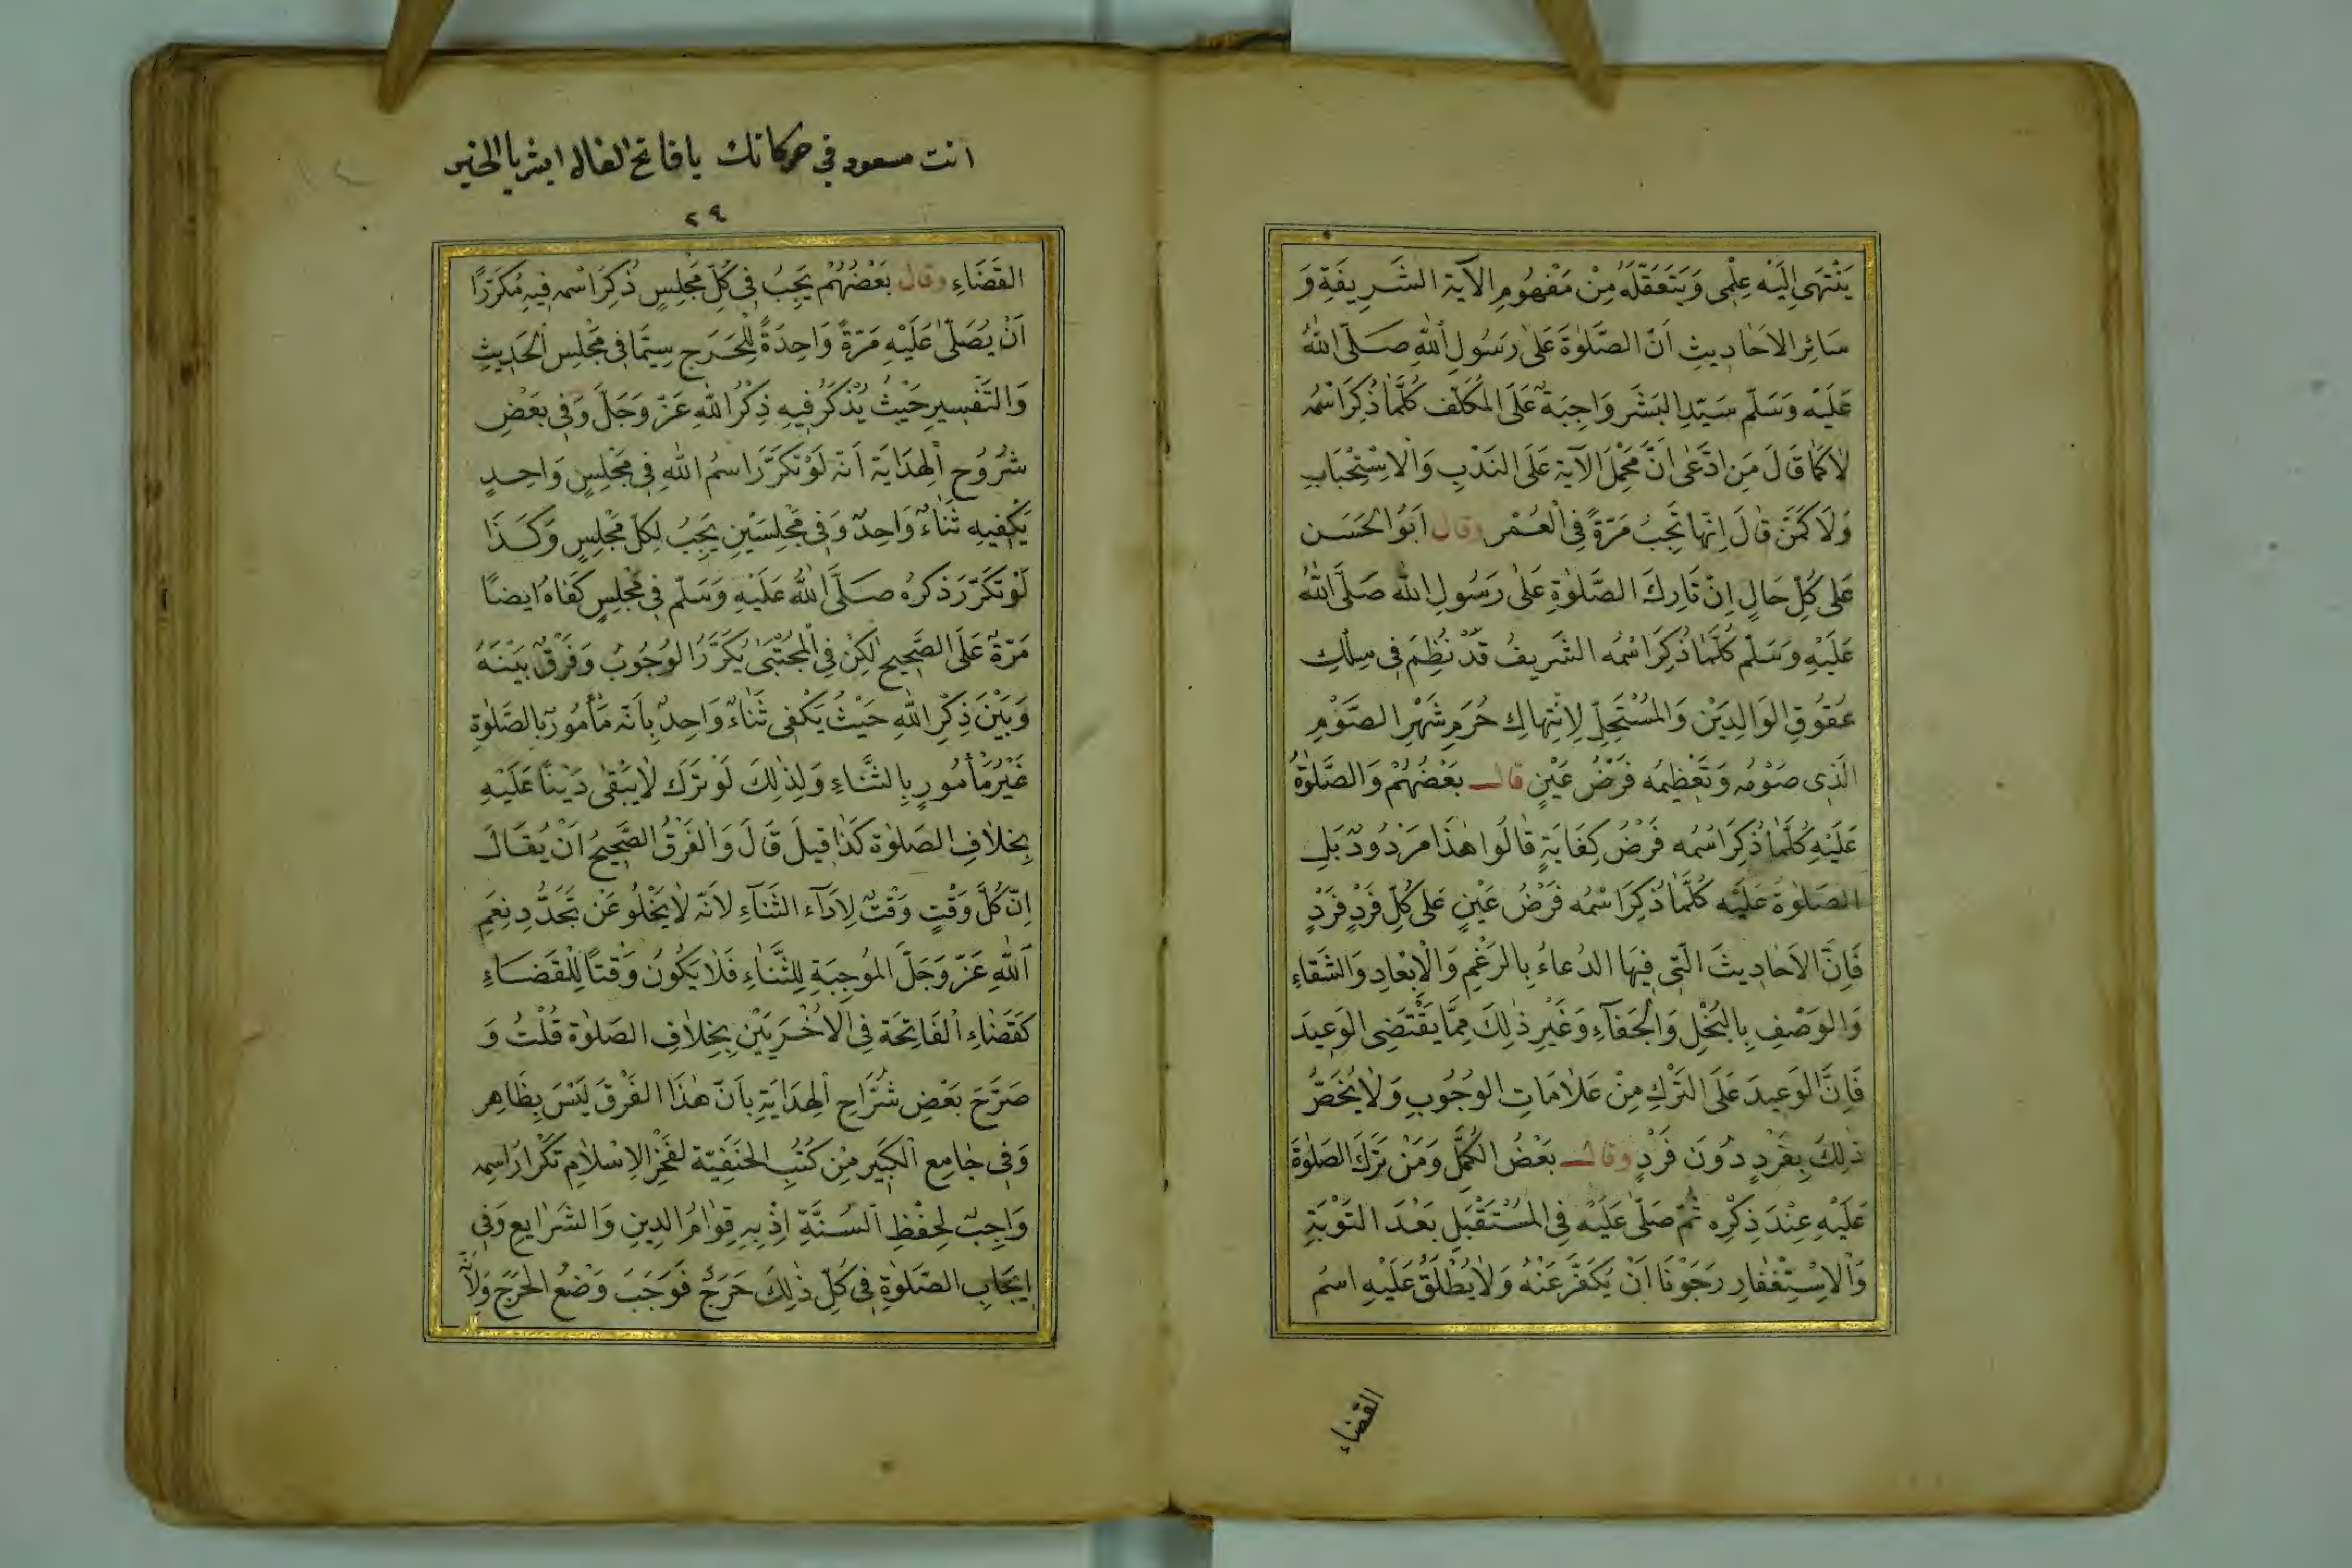 يَنْتَهِى اِلَيْهِ عِلْمِى وَيَتَعَقَّلَهُ مِنْ مَفْهُومِ الآيَةِ الشَّرِيفَةِ وَ
سَائِرِ الاَحَادِيثِ اَنَّ الصَّلٰوةَ عَلٰى رَسُولِ اللّٰهِ صَلَّى اللّٰهُ
عَلَيْهِ وَسَلَّمَ سَيِّدِ البَشَرِ وَاجِبَةٌ عَلَى المُكَلَّفِ كُلَّمَا ذُكِرَ اسْمُهُ
لَا كَمَا قَالَ مَنِ ادَّعٰى اَنَّ مَحْمِلَ الآيَةِ عَلَى النَّدْبِ وَالْاِسْتِحْبَابِ
وَلَا كَمَنْ قَالَ اِنَّهَا تَجِبُ مَرَّةً فِى الْعُمْرِ وقال اَبُوالحَسَن
عَلٰى كُلِّ حَالٍ اِنَّ تَارِكَ الصَّلٰوةِ عَلٰى رَسُولِ اللّٰهِ صَلَّى اللّٰهُ
عَلَيْهِ وَسَلَّمَ كُلَّمَا ذُكِرَ اسْمُهُ الشَّرِيفُ قَدْ نُظِمَ فِى سِلْكِ
عُقُوقِ الوَالِدَيْنِ وَالمُسْتَحِلِّ لِاِنْتِهَاكِ حُرَمِ شَهْرِ الصَّوْمِ
الَّذِى صَوْمُهُ وَتَعْظِيمُهُ فَرْضُ عَيْنٍ قال بَعْضُهُمْ وَالصَّلٰوةُ
عَلَيْهِ كُلَّمَا ذُكِرَ اسْمُهُ فَرْضُ كِفَايَةٍ قَالُوا هٰذَا مَرْدُودٌ بَلِ
الصَّلٰوةُ عَلَيْهِ كُلَّمَا ذُكِرَ اسْمُهُ فَرْضُ عَيْنٍ عَلٰى كُلِّ فَرْدٍ فَرْدٍ
فَاِنَّ الاَحَادِيثَ الَّتِى فِيهَا الدُعاءُ بِالرَغْمِ وَالْاِبْعَادِ وَالشَقَاءِ
وَالوَصْفِ بِالبُخْلِ وَالْجَفَآءِ وَغَيْرِ ذٰلِكَ مِمَّا يَقْتَضِى الوَعِيدَ
فَاِنَّ الوَعِيدَ عَلَى التَرْكِ مِنْ عَلَامَاتِ الوُجُوبِ وَلَا يُخَصُّ
ذٰلِكَ بِفَرْدٍ دُونَ فَرْدٍ وقال بَعْضُ الكُمَّلِ وَمَنْ تَرَكَ الصَلٰوةَ
عَلَيْهِ عِنْدَ ذِكْرِهِ ثُمَّ صَلَّى عَلَيْهِ فِى المُسْتَقْبَلِ بَعْدَ التَوْبَةِ
وَالْاِسْتِغْفَارِ رَجَوْنَا اَنْ يُكَفَّرَ عَنْهُ وَلَا يُطْلَقُ عَلَيْهِ اسمُ
القضاء
انت مسعود فى حركاتك يا فاتح الفال ابشر بالخير
٢٩
القَضَاءِ وقال بَعْضُهُمْ يَجِبُ فِى كُلِّ مَجْلِسٍ ذُكِرَ اسْمُهُ فِيهِ مُكَرَّرًا
اَنْ يُصَلّٰى عَلَيْهِ مَرَّةً وَاحِدَةً لِلْحَرَجِ سِيَّمَا فِى مَجْلِسِ الْحَدِيثِ
وَالتَفْسِيرِ حَيْثُ يُذْكَرُ فِيهِ ذِكْرُ اللّٰهِ عَزَّ وَجَلَّ وَفِى بَعْضِ
شُرُوحِ الْهِدَايَةِ اَنَّهُ لَوْ تَكَرَّرَ اسمُ اللّٰهِ فِى مَجْلِسٍ وَاحِدٍ
يَكْفِيهِ ثَنَاءٌ وَاحِدٌ وَفِى مَجْلِسَيْنِ يَجِبُ لِكُلِّ مَجْلِسٍ وَكَذَا
لَوْ تَكَرَّرَ ذِكرُهُ صَلَّى اللّٰهُ عَلَيْهِ وَسَلَّمَ فِى مَجْلِسٍ كَفَاهُ ايضًا
مَرَّةٌ عَلَى الصَّحِيحِ لٰكِنْ فِى الْمُجْتَبٰى يُكَرَّرُ الوُجُوبُ وَفَرْقٌ بَيْنَهُ
وَبَيْنَ ذِكْرِ اللّٰهِ حَيْثُ يَكْفِى ثَنَاءٌ وَاحِدٌ بِاَنَّهُ مَأْمُورٌ بِالصَّلٰوةِ
غَيْرُ مَأْمُورٍ بِالثَّنَاءِ وَلِذٰلِكَ لَوْ تَرَكَ لَا يَبْقٰى دَيْنًا عَلَيْهِ
بِخِلَافِ الصَلٰوةِ كَذَا قِيلَ قَالَ وَالْفَرْقُ الصَّحِيحُ اَنْ يُقَالَ
اِنَّ كُلَّ وَقْتٍ وَقْتٌ لِاَدَآءِ الثَنَآءِ لاَنَّهُ لَا يَخْلُو عَنْ تَجَدُّدِ نِعَمِ
اَللّٰهِ عَزَّ وَجَلَّ المُوجِبَةِ لِلثَّنَاءِ فَلَا يَكُونُ وَقْتًا لِلْقَضَاءِ
كَقَضَاءِ الْفَاتِحَةِ فِى الاُخْرَيَيْنِ بِخِلَافِ الصَلٰوةِ قُلْتُ وَ
صَرَّحَ بَعْضِ شُرَّاحِ الْهِدَايَةِ بِاَنَّ هٰذَا الفَرْقَ لَيْسَ بِظَاهِر
وَفِى جَامِعِ الْكَبِيرِ مِنْ كُتُبِ الحَنَفِيَّةِ لِفَخْرِ الاِسْلَامِ تَكْرَارُ اسمِهِ
وَاجِبٌ لِحِفْظِ السُّنَّةِ اِذْ بِهِ قِوَامُ الدِينِ وَالشَرَايعِ وَفِى
اِيجَابِ الصَّلٰوةِ فِى كُلِّ ذٰلِكَ حَرَجٌ فَوَجَبَ وَضْعُ الحَرَجِ وَلِاَنَّهُ